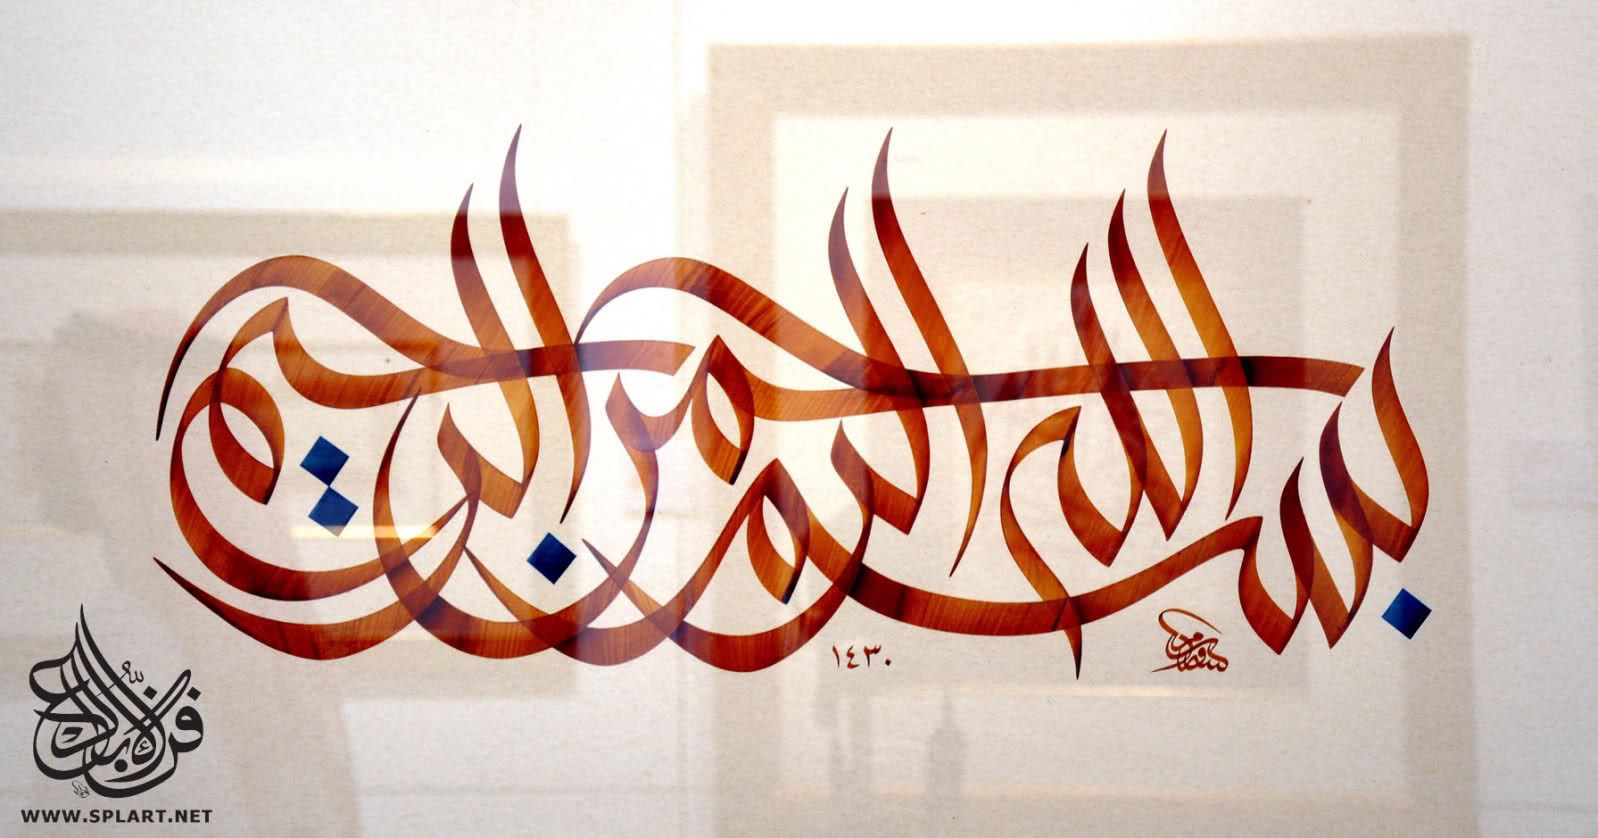 بسم الله الرحمن الرحيم
١٤٣٠
فن الإبداع
WWW.SPLART.NET